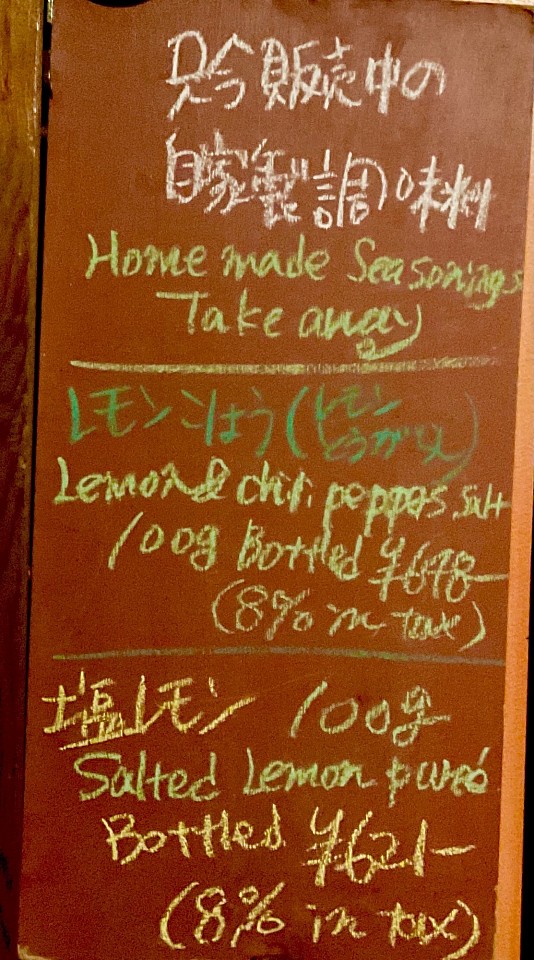 只今販売中の
自家製調味料
Home made Seasonings
Take away
レモンこしょう(レモン
とうがらし)
Lemon & chili peppers salt
100g Bottled ¥648-
(8% in tax)
塩レモン 100g
Salted Lemon pureé
Bottled ¥621-
(8% in tax)